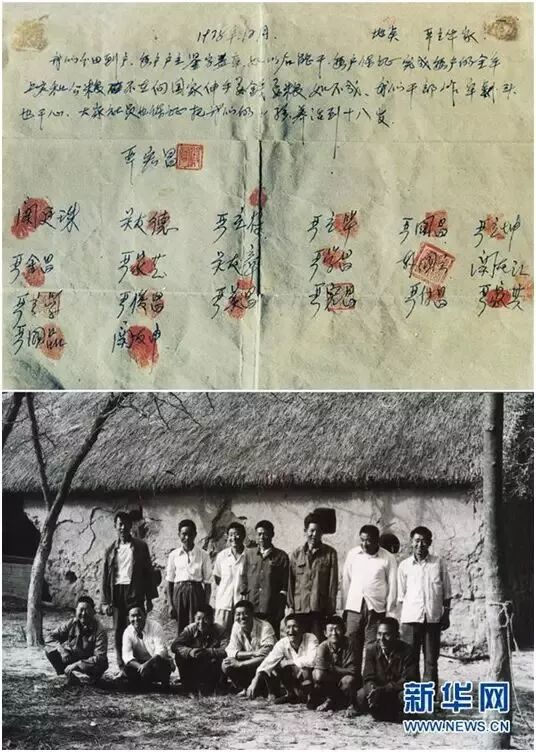 1978年12月。 地点 严立华家
我们分田到户,每户户主签字盖章,如以后能干,每户保证完成每户的全年
上交和公粮不在向国家伸手要钱要粮,如不成,我们干部作牢刹头
也干心,大家社员也保证把我们的小孩养活到十八岁。
严宏昌
关廷珠 关友德 严立符 严立华 严国昌 严立坤
严金昌 严家芝 关友章 严学昌 韩国云 关友江
严立学 严俊昌 严美昌 严宏昌 严付昌 严家其
严国品 关友申
新华网
WWW.NEWS.CN